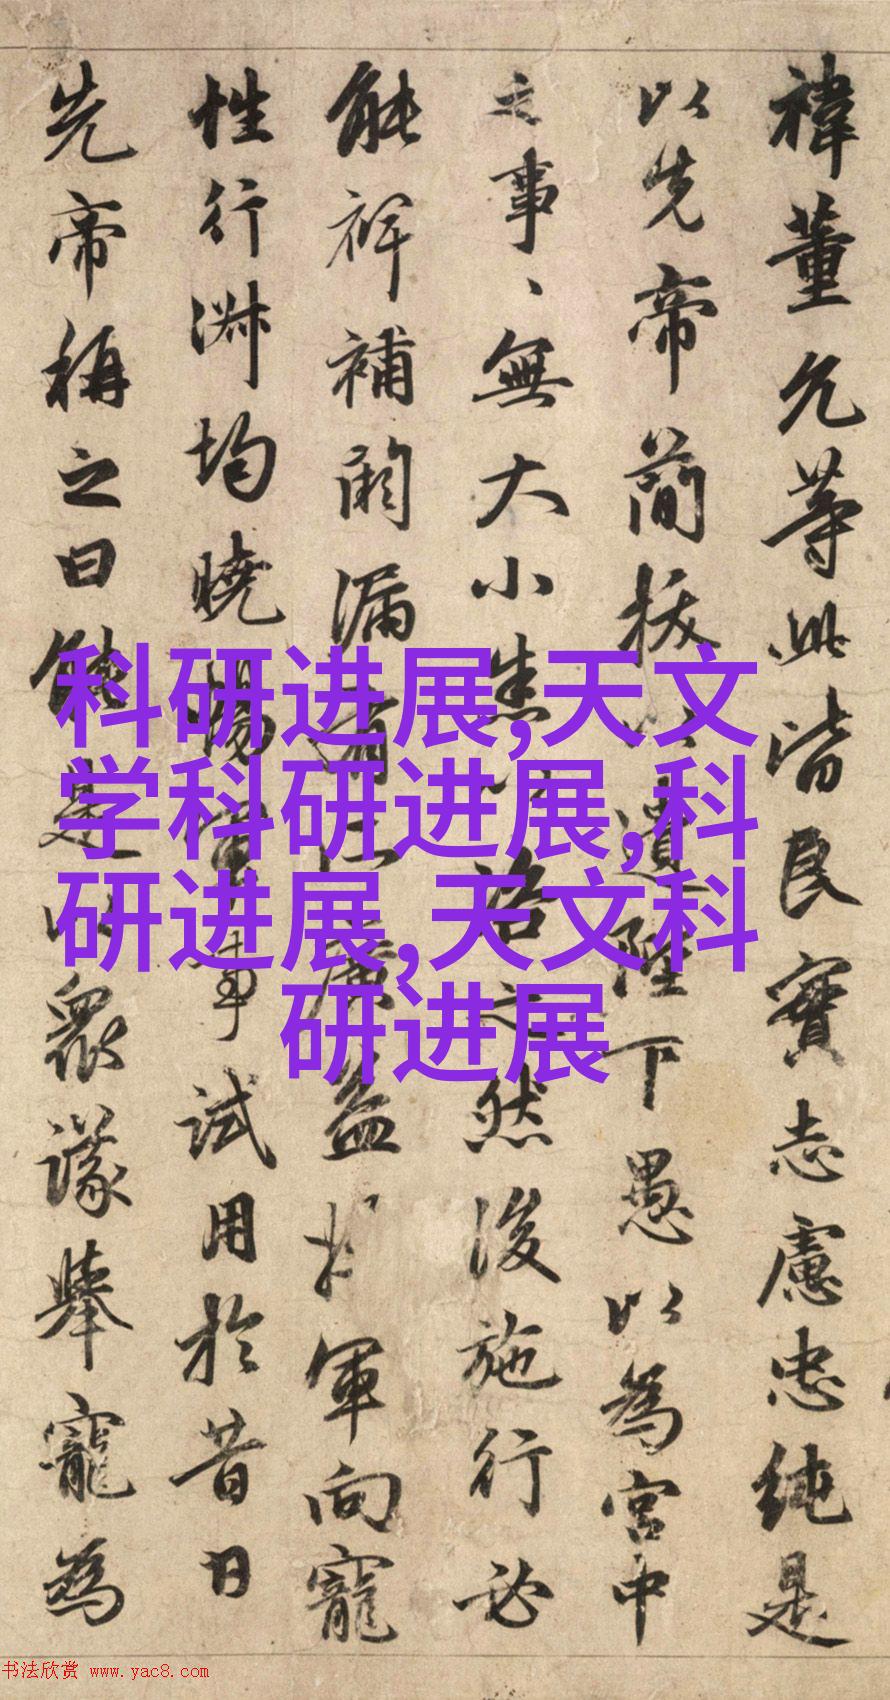 禕董允等此皆良實志慮忠純是
以先帝簡拔以遺陛下愚以為宮中
之事、無大小悉以諮之然後施行必
能裨補闕漏有所廣益將軍向寵
性行淑均曉暢軍事試用於昔日
先帝稱之曰能是以眾議舉寵為
科研进展,天文
学科研进展,科
研进展,天文科
研进展
书法欣赏 www.yac8.com